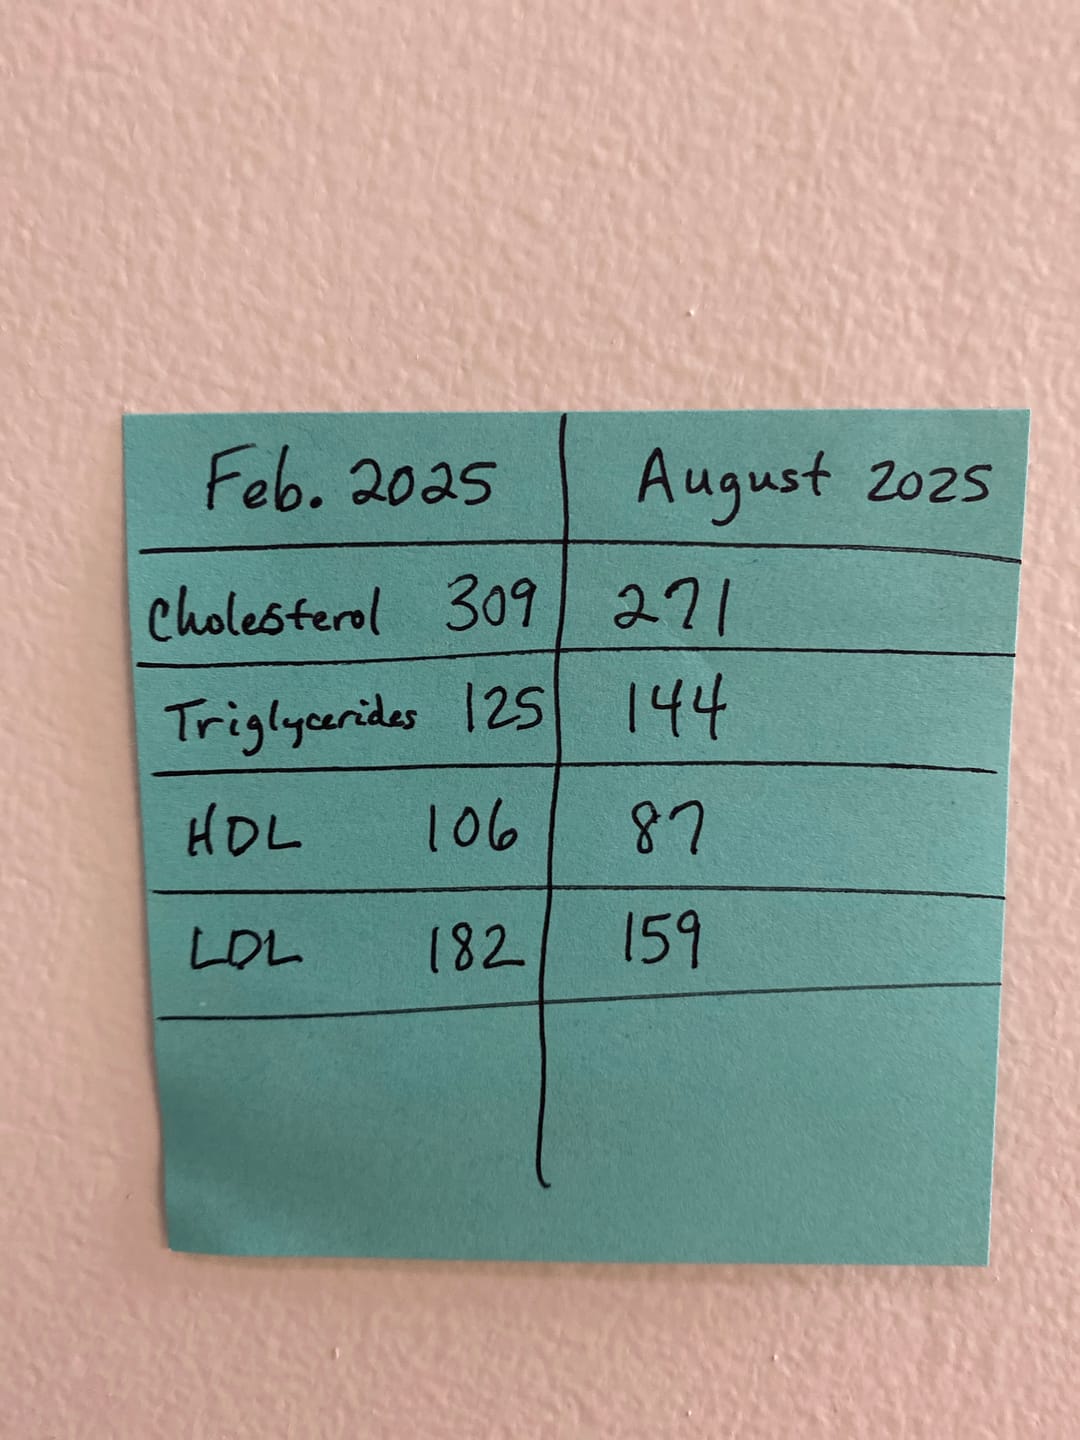 Feb. 2025 August 2025
Cholesterol 309 271
Triglycerides 125 144
HDL 106 87
LDL 182 159